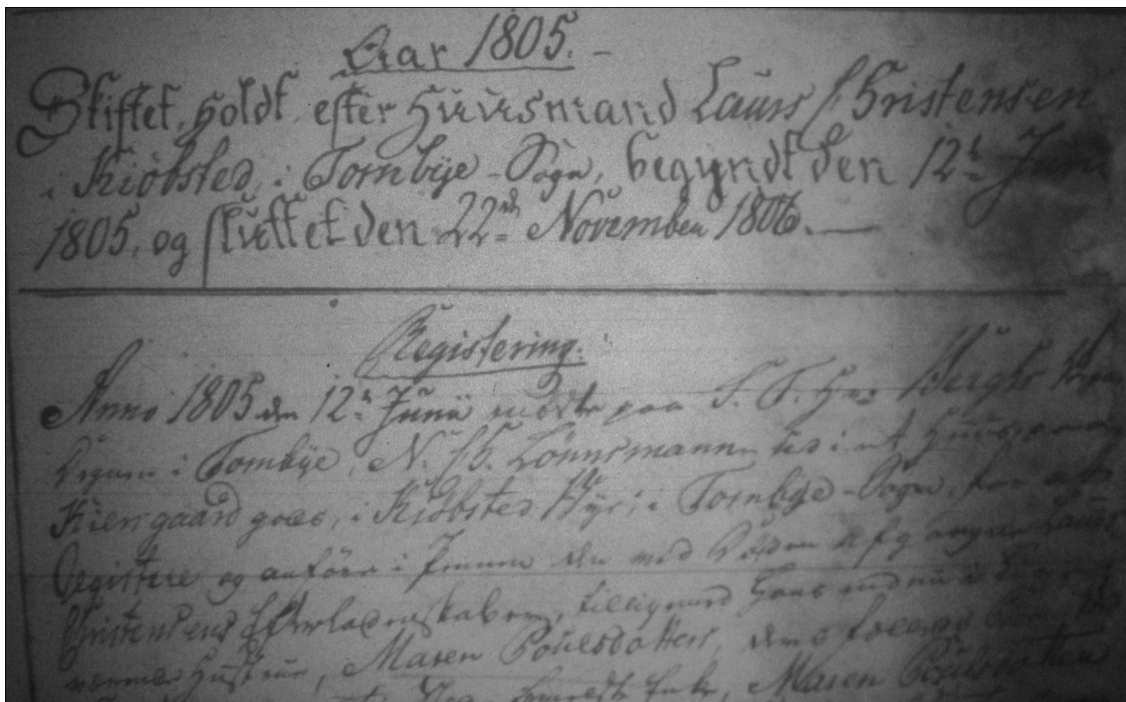 Aar 1805. -
Skiftet, holdt, efter Huusmand Laurs Christensen
i Kiöbsted, i Tornbÿe-Sogn, begyndt den 12te Junii
1805, og sluttet den 22de November 1806. —
Registering.
Anno 1805 den 12te Junii mödte paa S. T. Hr. Berghs
Degnen i Tornbÿe, N. C. Lönnsmann ud i et Huus
Kiergaard goes, i Kiöbsted Bÿe, i Tornbÿe-Sogn, for at
Registere og anföre i Pennen den ved Döden afgangne Laurs
Christensens Efterladenskaber, tilligemed Hans
Hustrue, Maren Poulsdatters, denes
Maren Poulsdatter